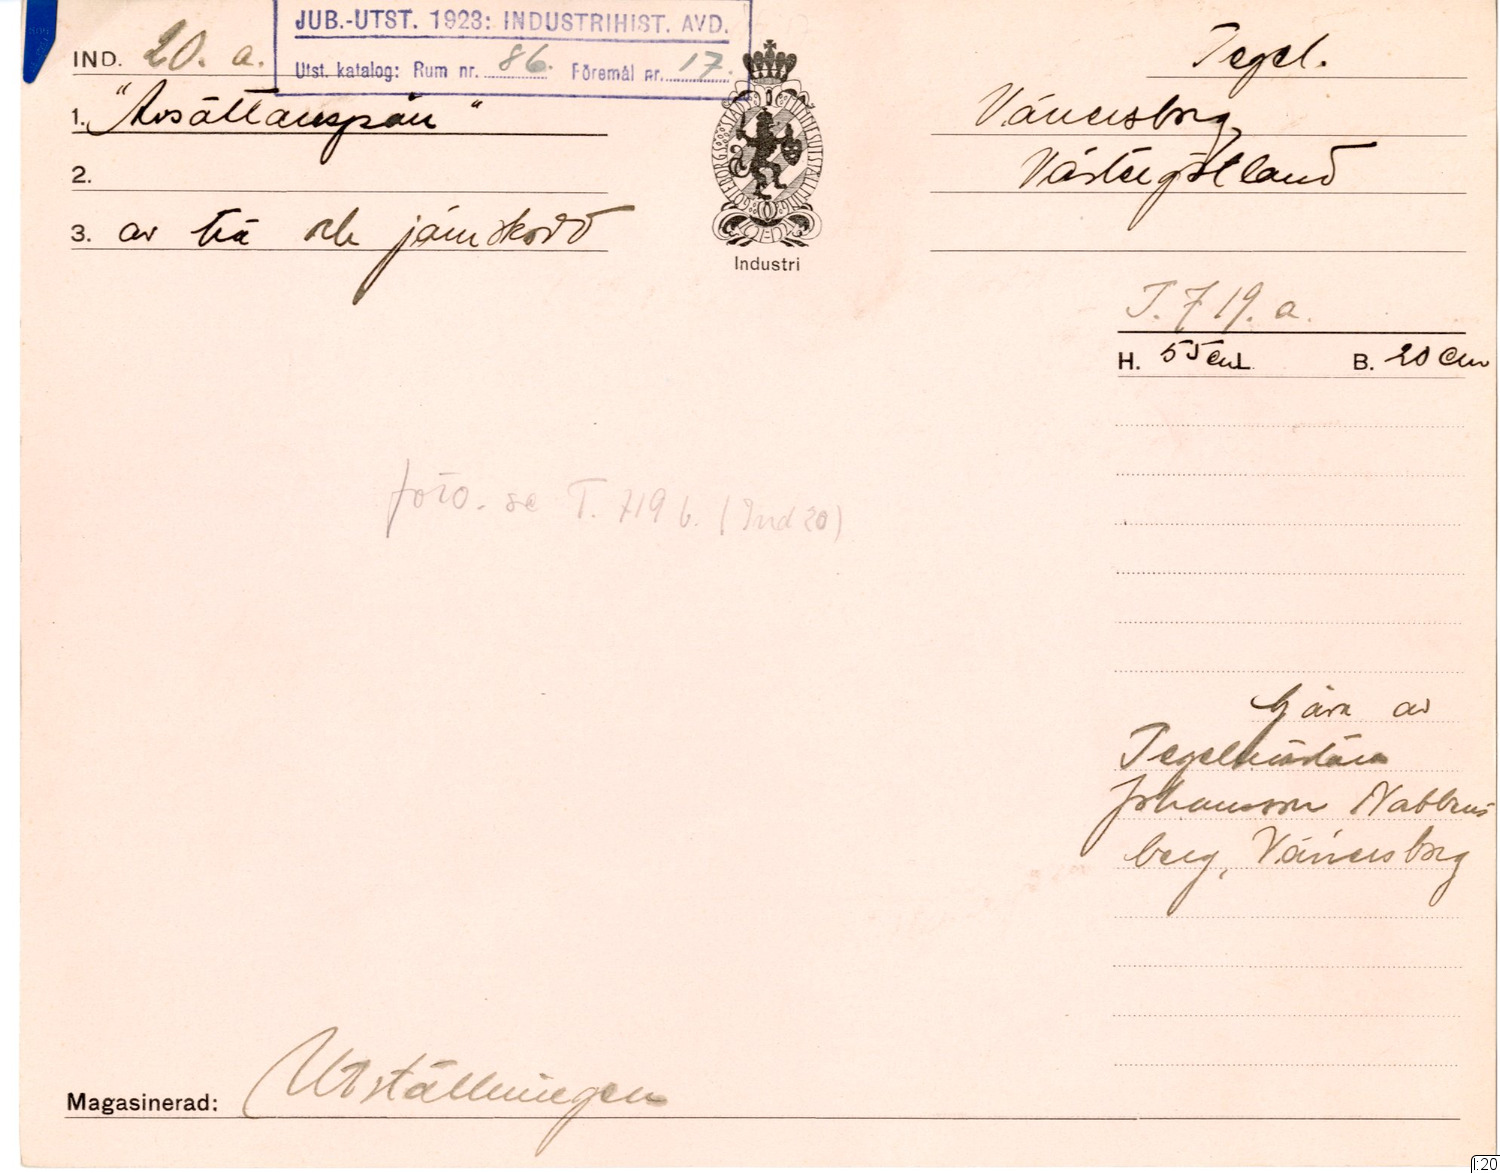 JUB.-UTST. 1923: INDUSTRIHIST. AVD.
Utst. katalog: Rum nr. 86. Föremål nr. 17.
IND. 20. a.
1. "Avsättarespån"
2.
3. av trä och järnskodd
GÖTEBORGS STADS JUBILEUMSUTSTÄLLNING
Industri
Tegel.
Vänersborg,
Västergötland
T. 719. a.
H. 55 cm. B. 20 cm
foto. se T. 719 b. (Ind 20)
Gåva av
Tegelmästare
Johansson Nabbens
berg, Vänersborg
Magasinerad: Utställningen
1:20